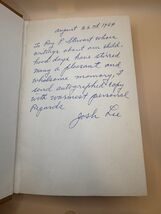 August 22nd 1964
To Roy P. Stewart whose
writings about our child-
hood days have stirred
many a pleasant, and
wholesome memory, I
send autographed copy
with warmest personal
Regards
Josh Lee